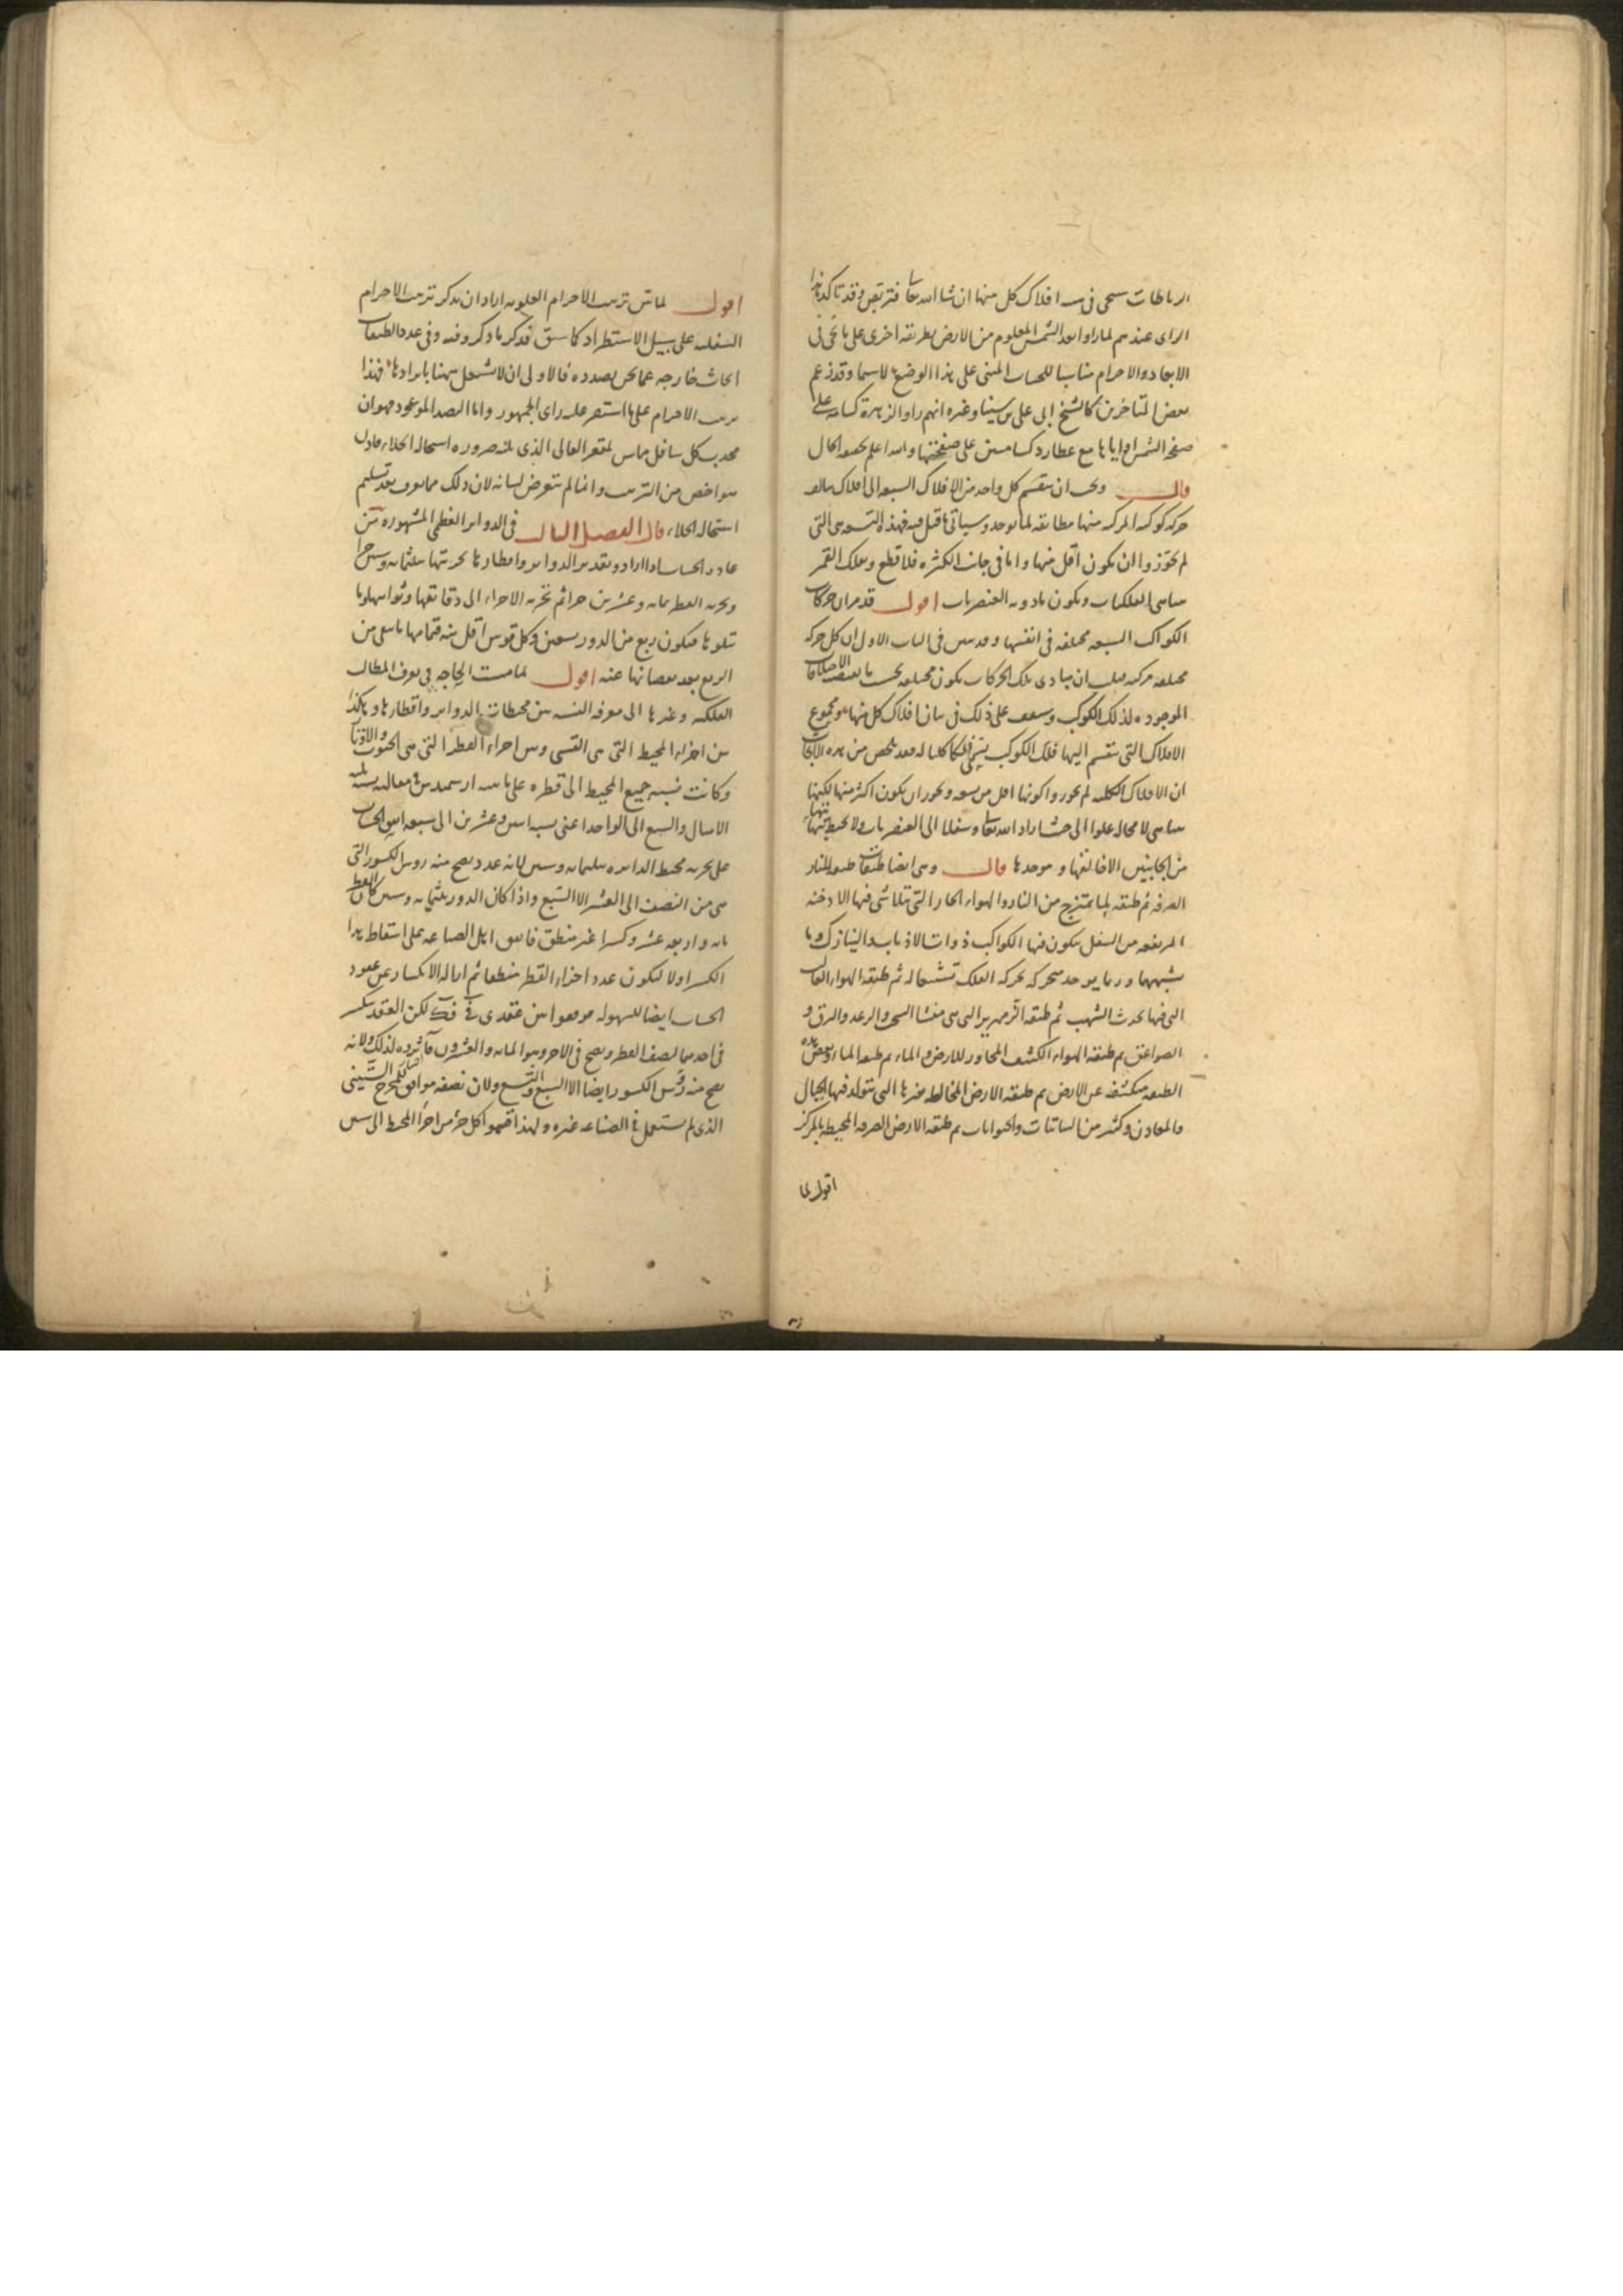 الرباطات سحى فى افلاك كل منها ان شا الله تعا فتربص وقد تاكد هذا
الراى عندهم لما راوا بعد الشمس المعلوم من الارض بطريقة اخرى على ما فى
الابعاد والاجرام مناسبا للحساب المبنى على هذا الوضع لاسيما وقد زعم
بعض المتاخرين كالشيخ ابى على بن سينا وغيره انهم راوا الزهرة كشامة على
صفحة الشمس او اياها مع عطارد كشامتين على صفحتها والله اعلم بحقيقة الحال
قال ويجب ان ينقسم كل واحد من الافلاك السبعة الى افلاك
حركة كوكبه المركبة منها مطابقة لما يوجد وسياتى ما قيل فيه فهذه التسعة هى التى
لم يجوزوا ان يكون اقل منها واما فى جانب الكثرة فلا قطع وبفلك القمر
تتناهى الفلكيات ويكون ما دونه العنصريات اقول قد مر ان حركات
الكواكب السبعة مختلفة فى انفسها وقد تبين فى الباب الاول ان كل حركة
مختلفة مركبة فيجب ان مبادى تلك الحركات يكون مختلفة بحسب ما الاختلافات
الموجودة لذلك الكوكب وستقف على ذلك فى بيان افلاك كل منها ومجموع
الافلاك التى ينقسم اليها فلك الكوكب يسمى فلكا كليا له فقد تلخص من هذه الابحاث
ان الافلاك الكلية لم يجوزوا كونها اقل من تسعة ويجوز ان يكون اكثر منها لكنها
تتناهى لا محالة علوا الى حيث اراد الله تعا وسفلا الى العنصريات ولا يحيط بنهايتها
من الجانبين الا خالقها وموجدها قال وهى ايضا طبقات طبقة للنار
الصرفة ثم طبقة لما يمتزج من النار والهواء الحار التى تتلاشى فيها الادخنة
المرتفعة من السفل ويتكون فيها الكواكب ذوات الاذناب والنيازك وما
يشبهها وربما يوجد متحركة بحركة الفلك تشبها له ثم طبقة الهواء الغالب
التى فيها تحدث الشهب ثم طبقة الزمهريرية التى هى منشا السحب والرعد والبرق و
الصواعق ثم طبقة الهواء الكثيف المجاور للارض والماء ثم طبقة الماء وبعض هذه
الطبقة منكشفة عن الارض ثم طبقة الارض المخالطة بغيرها التى تتولد فيها الجبال
والمعادن وكثير من النباتات والحيوانات ثم طبقة الارض الصرفة المحيطة بالمركز
اقول لما
اقول لما بين ترتيب الاجرام العلوية اراد ان يذكر ترتيب الاجرام
السفلية على سبيل الاستطراد كما سبق فذكر ما ذكر وفيه وفى عدد الطبقات
ابحاث خارجة عما نحن بصدده فالاولى ان لا نشتغل ههنا بايرادها فهذا
ترتيب الاجرام على ما استقر عليه راى الجمهور واما النضد الموعود فهو ان
محدب كل سافل مماس لمقعر العالى الذى يليه ضرورة استحالة الخلاء فاذن
هو اخص من الترتيب وانما لم نتعرض لبيانه لان ذلك مما يعرف بعد تسليم
استحالة الخلاء قال الفصل الثالث فى الدوائر العظمى المشهورة من
عادة الحساب اذا ارادوا تقدير الدوائر واقطارها تجزيتها بثلثمائة وستين جزءا
وتجزئة القطر بمائة وعشرين جزءا ثم تجزئة الاجزاء الى دقائقها وثوانيها وما
تتلوها فيكون ربع من الدور تسعين وكل قوس اقل منه فتمامها ما بقى من
الربع بعد نقصانها عنه اقول لما مست الحاجة فى تعرف المطالب
الفلكية وغيرها الى معرفة النسبة بين محيطات الدوائر واقطارها وهكذا
بين اجزاء المحيط التى هى القسى وبين اجزاء القطر التى هى الجيوب والاوتار
وكانت نسبة جميع المحيط الى قطره على ما بينه ارشميدس فى مقالته نسبة ثلثة
الامثال والسبع الى الواحد اعنى نسبة اثنين وعشرين الى سبعة الحساب
على تجزئة محيط الدائرة بثلثمائة وستين لانه عدد يصح منه روس الكسور التى
هى من النصف الى العشر الا السبع واذا كان الدور ثلثمائة وستين كان القطر
مائة واربعة عشر وكسرا غير منطق فاتفق اهل الصناعة على اسقاط هذا
الكسر اولا ليكون عدد اجزاء القطر منطقا ثم ازالة الانكسار عن عقود
الحساب ايضا للسهولة فوقعوا بين عقدى قى قك لكن العقد ينكسر
فى احدهما نصف القطر ويصح فى الاخر وهو المائة والعشرون فآثروه لذلك ولانه
يصح منه روس الكسور ايضا الا السبع والتسع ولان نصفه موافق لمخرج الستينى
الذى لم يستعمل فى الصناعة غيره ولهذا قسموا كل جزء من اجزا المحيط الى ستين